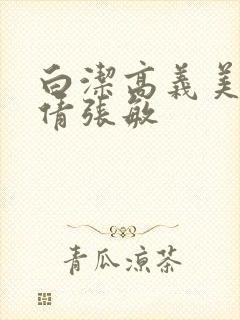 白潔高義美
倩張敏
青瓜涼茶